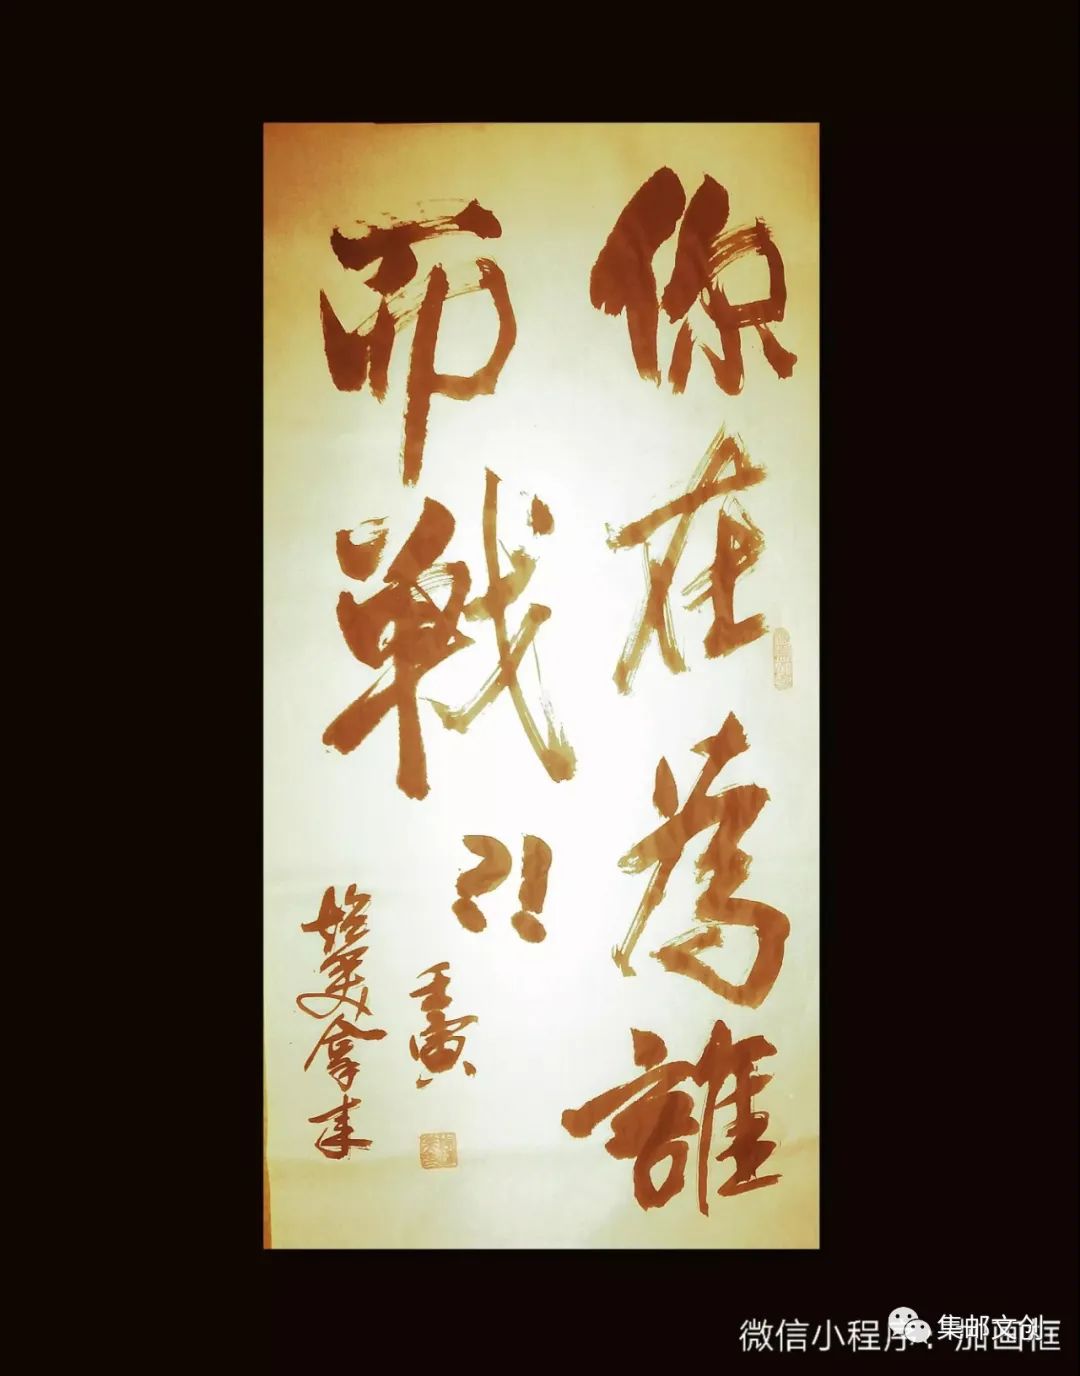 你在為誰
而戰?!
壬寅
拿来
微信小程序:加画框
集邮文创